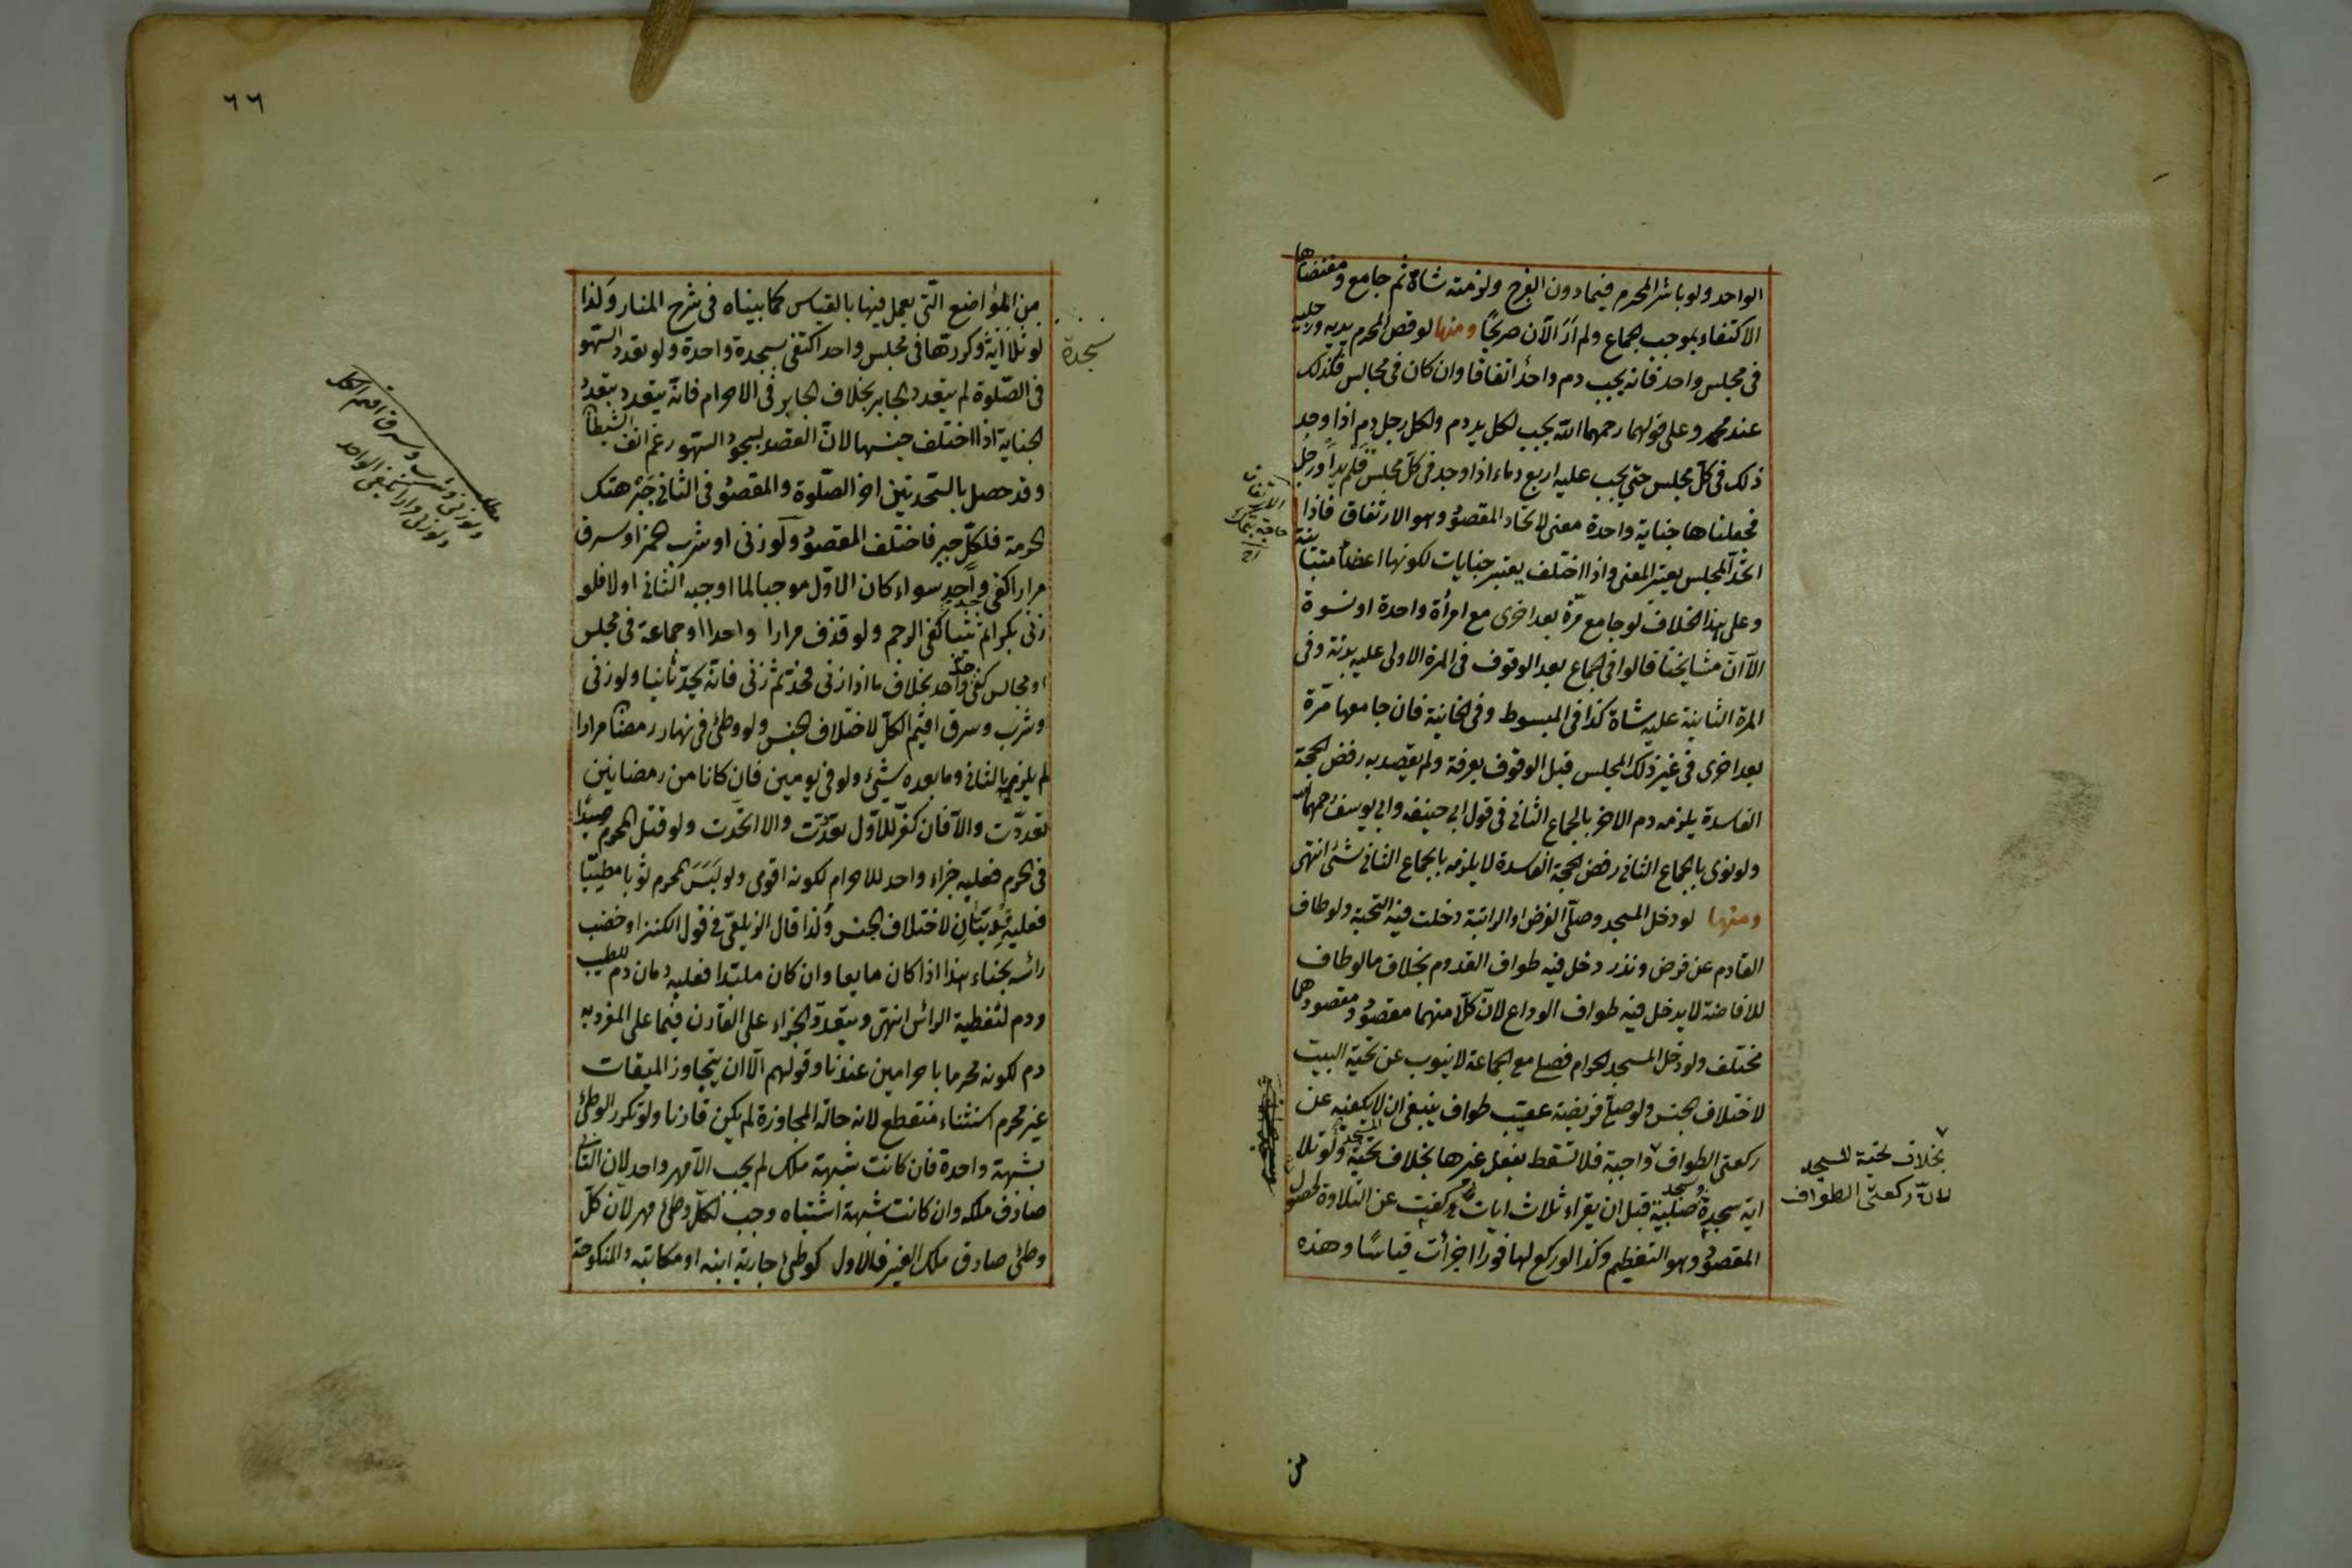 الواحد ولو باشر المحرم فيما دون الفرج ولزمته شاة ثم جامع ومقتضاها
الاكتفاء بموجب الجماع ولم اَرَ الآن صريحًا ومنها لو قص المحرم يديه ورجليه
فى مجلس واحد فانه يجب دم واحدٌ اتفاقا وان كان فى مجالس فكذلك
عند محمد وعلى قولهما رحمهما الله يجب لكل يد دم ولكل رجل دم اذا وجد
ذلك فى كل مجلس حتى يجب عليه اربع دماء اذا وجد فى كل مجلس قلم يدٍ او رجل
فجعلناها جناية واحدة معنى لاتحاد المقصود وهو الارتفاق فاذا
اتحد المجلس يعتبر المعنى واذا اختلف يعتبر جنايات لكونها اعضاء متباينة
وعلى هذا الخلاف لو جامع مرّة بعد اخرى مع امرأة واحدة او نسوة
الا ان مشايخنا قالوا فى الجماع بعد الوقوف فى المرة الاولى عليه بدنة وفى
المرة الثانية عليه شاة كذا فى المبسوط وفى الخانية فان جامعها مرّة
بعد اخرى فى غير ذلك المجلس قبل الوقوف بعرفة ولم يقصد به رفض الحجة
الفاسدة يلزمه دم الاخر بالجماع الثانى فى قول ابى حنيفه وابى يوسف رحمهما الله
ولو نوى بالجماع الثانى رفض الحجة الفاسدة لا يلزمه بالجماع الثانى شئ انتهى
ومنها لو دخل المسجد وصلّى الفرض او الراتبة دخلت فيه التحية ولو طاف
القادم عن فرض ونذر دخل فيه طواف القدوم بخلاف ما لو طاف
للافاضة لا يدخل فيه طواف الوداع لان كلّا منهما مقصود ومقصودهما
مختلف ولو دخل المسجد الحرام فصلى مع الجماعة لا ينوب عن تحية البيت
لاختلاف الجنس ولو صلّى فريضة عقيب طواف ينبغى ان لا يكفيه عن
ركعتى الطواف واجبة فلا تسقط بفعل غيرها بخلاف تحية المسجد ولو تلا
بخلاف تحية المسجد
لان ركعتى الطواف
اية سجدة وسجد صلبية قبل ان يقراء ثلاث ايات كفت عن التلاوة لحصول
المقصود وهو التعظيم وكذا لو ركع لها فورًا اجزأت قياسًا وهذه
من
٦٦
من المؤاضع الّتى يعمل فيها بالقياس كما بيناه فى شرح المنار وكذا
لو تلا اية وكررتها فى مجلس واحد اكتفى بسجدة واحدة ولو تعدد السّهو
سجدة
فى الصّلوة لم يتعدد الجابر بخلاف الجابر فى الاحرام فانّه يتعدد بتعدّد
الجناية اذا اختلف جنسها لان القصد بسجود السّهو رغم انف الشيطان
وقد حصل بالسّجدتين اخر الصّلوة والمقصود فى الثانى جَبْر هتك
الحرمة فلكلّ جبر فاختلف المقصود ولو زنى او شرب الخمر او سرق
مرارا كفى حد واحد سواء كان الاوّل موجبا لما اوجبه الثانى اولا فلو
زنى بكرا ثم ثيبا كفى الرجم ولو قذف مرارا واحدا او جماعة فى مجلس
او مجالس كفى حد واحد بخلاف ما اذا زنى فحد ثم زنى فانّه يحدّ ثانيا ولو زنى
وشرب وسرق اقيم الكلّ لاختلاف الجنس ولو وطئ فى نهار رمضان مرارا
مطلب
ولو زنى وشرب وسرق اقيم الكل
لم يلزمه بالثانى وما بعده شئ ولو فى يومين فان كانا من رمضانين
تعدّدت والا فان كفر للاوّل تعدّدت والا اتحدت ولو قتل المحرم صيدًا
فى الحرم فعليه جزاء واحد للاحرام لكونه اقوى ولو لبَسَ المحرم ثوبا مطيّبا
فعليه فِدْيتَانِ لاختلاف الجنس ولذا قال الزيلعى فى قول الكنز او خضب
رأسه بحناء هذا اذا كان مايعا وان كان ملبّدا فعليه دمان دم للطيب
ودم لتغطية الرأس انتهى ويتعدّد الجزاء على القارن فيما على المفرد به
دم لكونه محرما باحرامين عندنا وقولهم الا ان يتجاوز الميقات
غير محرم استثناء منقطع لانه حالة المجاوزة لم يكن قارنا ولو تكرر الوطئ
بشبهة واحدة فان كانت شبهة ملك لم يجب الا مهر واحد لان الثانى
صادف ملكه وان كانت شبهة اشتباه وجب لكلّ وطئ مهر لان كلّ
وطئ صادق ملك الغير فالاول كوطئ جارية ابنه او مكاتبته والمنكوحة